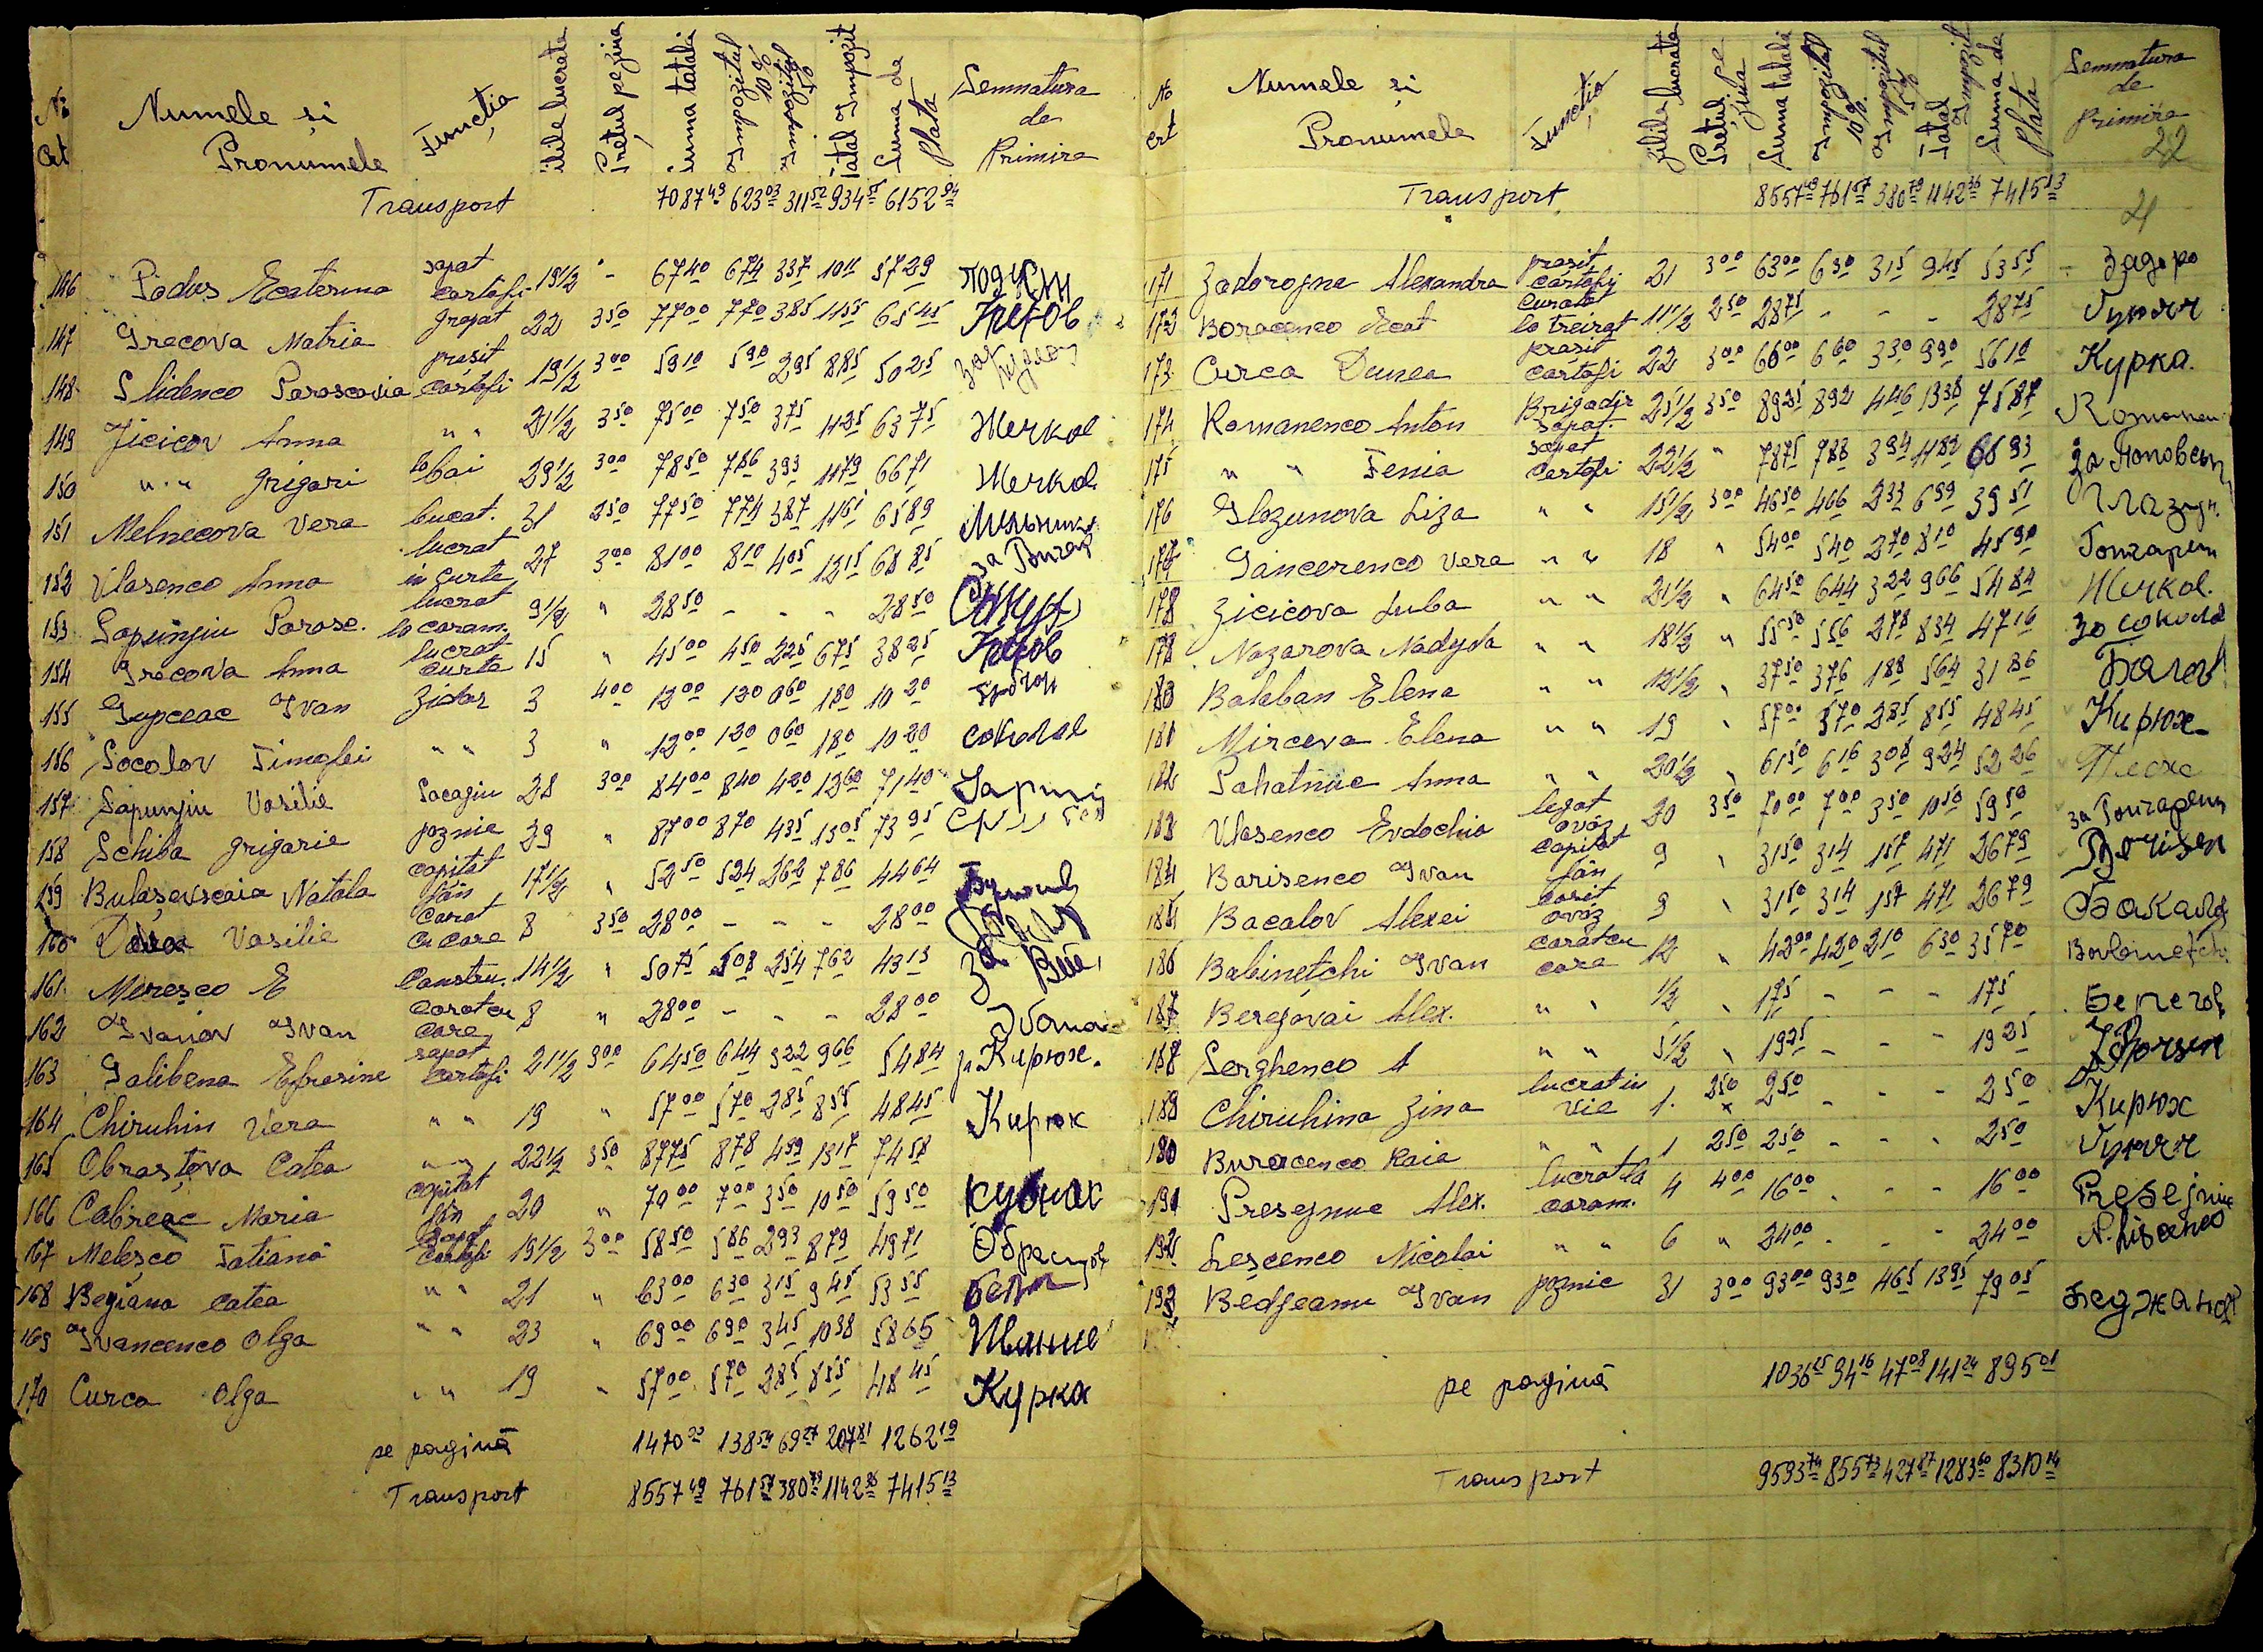 № Crt Numele și Pronumele Funcția zilele lucrate Prețul pe ziua Suma totală Impozitul 10% Impozitul 5% Total Impozit Suma de plată Semnatura de Primire
Transport 7087 49 623 03 311 52 934 55 6152 94
146 Podus Ecaterina sapat cartofi 19 1/2 - 67 40 6 74 3 37 10 11 57 29
147 Grecova Matria grajat 22 3 50 77 00 7 70 3 85 11 55 65 45 Греков
148 Slidenco Parascovia prasit cartofi 19 1/2 3 00 59 10 5 90 2 95 8 85 50 25
149 Jicicov Anna " " 21 1/2 3 50 75 00 7 50 3 75 11 25 63 75 Жечков
150 " " Grigori la bai 29 1/2 3 00 78 50 7 86 3 93 11 79 66 71 Жечков
151 Melnecova Vera bucat. 31 2 50 77 50 7 74 3 87 11 61 65 89 Мельник
152 Vlasenco Anna lucrat in curte 27 3 00 81 00 8 10 4 05 12 15 68 85 за Гончар
153 Sapunjiu Parasc. lucrat la caram. 9 1/2 " 28 50 - - - 28 50
154 Grecova Anna lucrat curte 15 " 45 00 4 50 2 25 6 75 38 25 Греков
155 Gupceac Ivan Zidar 3 4 00 12 00 1 20 0 60 1 80 10 20
156 Socolov Timofei " " 3 " 12 00 1 20 0 60 1 80 10 20 Соколов
157 Sapunjiu Vasilie Sacagiu 28 3 00 84 00 8 40 4 20 12 60 71 40 Sapunj
158 Schiba Grigorie paznic 29 " 87 00 8 70 4 35 13 05 73 95
159 Bulașevscaia Natala capitat fân 17 1/2 " 52 50 5 24 2 62 7 86 44 64
160 Vasilie Carat cu Care 8 3 50 28 00 - - - 28 00
161 Mereșco E Constru. 14 1/2 " 50 75 5 08 2 54 7 62 43 13 за
162 Ivanov Ivan Carat cu Care 8 " 28 00 - - - 28 00 Ivano
163 Galibena Efrosine sapat Cartofi 21 1/2 3 00 64 50 6 44 3 22 9 66 54 84 за Кирюх.
164 Chiruhin Vera " " 19 " 57 00 5 70 2 85 8 55 48 45 Кирюх
165 Obrasțova Catea " " 22 1/2 3 50 87 75 8 78 4 39 13 17 74 58
166 Cabreac Maria capitat fân 20 " 70 00 7 00 3 50 10 50 59 50
167 Meleșco Tatiana Sapat Cartofi 19 1/2 3 00 58 50 5 86 2 93 8 79 49 71 Образцов
168 Bejiana Catea " " 21 " 63 00 6 30 3 15 9 45 53 55
169 Ivancenco Olga " " 23 " 69 00 6 90 3 45 10 38 58 65 Иванче
170 Curca Olga " " 19 " 57 00 5 70 2 85 8 55 48 45 Курка
pe pagină 1470 138 54 69 27 207 81 1262 19
Transport 8557 49 761 57 380 79 1142 36 7415 13
No Crt Numele și Pronumele Funcția Zilile lucrate Prețul pe ziua Suma totală Impozitul 10% Impozitul 5% Total Impozit Suma de plată Semnatura de Primire
22
21
Transport 8557 49 761 57 380 79 1142 36 7415 13
171 Zadorojne Alexandra prasit cartofi 21 3 00 63 00 6 30 3 15 9 45 53 55 Задоро
172 Boracenco Ecat Curatat la treirat 11 1/2 2 50 28 75 - - - 28 75
173 Curca Dunea prasit cartofi 22 3 00 66 00 6 60 3 30 9 90 56 10 Курка.
174 Romanenco Anton Brigadir sapat. 25 1/2 3 50 89 25 8 92 4 46 13 38 75 87 Romanen
175 " " Fenia sapat Cartofi 22 1/2 " 78 75 7 88 3 94 11 82 66 93
176 Glazunova Liza " " 15 1/2 3 00 46 50 4 66 2 33 6 99 39 51 Глазун.
177 Gancerenco Vera " " 18 " 54 00 5 40 2 70 8 10 45 90 Гончарен
178 Zicicova Luba " " 21 1/2 " 64 50 6 44 3 22 9 66 54 84 Жечков.
178 Nazarova Nadejda " " 18 1/2 " 55 50 5 56 2 78 8 34 47 16 за Соколов
180 Balaban Elena " " 12 1/2 " 37 50 3 76 1 88 5 64 31 86
181 Mirceva Elena " " 19 " 57 00 5 70 2 85 8 55 48 45 Кирюх
182 Pahatnic Anna " " 20 1/2 " 61 50 6 16 3 08 9 24 52 26
183 Vlasenco Evdochia legat ovăz 20 3 50 70 00 7 00 3 50 10 50 59 50 за Гончарен
184 Barisenco Ivan capitat fân 9 " 31 50 3 14 1 57 4 71 26 79
185 Bacalov Alexei cosit ovăz 9 " 31 50 3 14 1 57 4 71 26 79 Бакалов
186 Babinețchi Ivan carat cu care 12 " 42 00 4 20 2 10 6 30 35 70
187 Beregovai Alex. " " 1/2 " 1 75 - - - 1 75 Берегов
188 Serghenco A " " 5 1/2 " 19 25 - - - 19 25
189 Chiruhina Zina lucrat in vie 1. 2 50 2 50 - - - 2 50 Кирюх
190 Buracenco Raia " " 1 2 50 2 50 - - - 2 50
191 Presejnuc Alex. lucrat la caram. 4 4 00 16 00 - - - 16 00 Presejniuc
192 Leșcenco Nicolai " " 6 " 24 00 - - - 24 00 N. Liscenco
193 Bedjeanu Ivan paznic 31 3 00 93 00 9 30 4 65 13 95 79 05 Беджанов
pe pagină 1036 25 94 16 47 08 141 24 895 01
Transport 9593 74 855 73 427 87 1283 60 8310 14